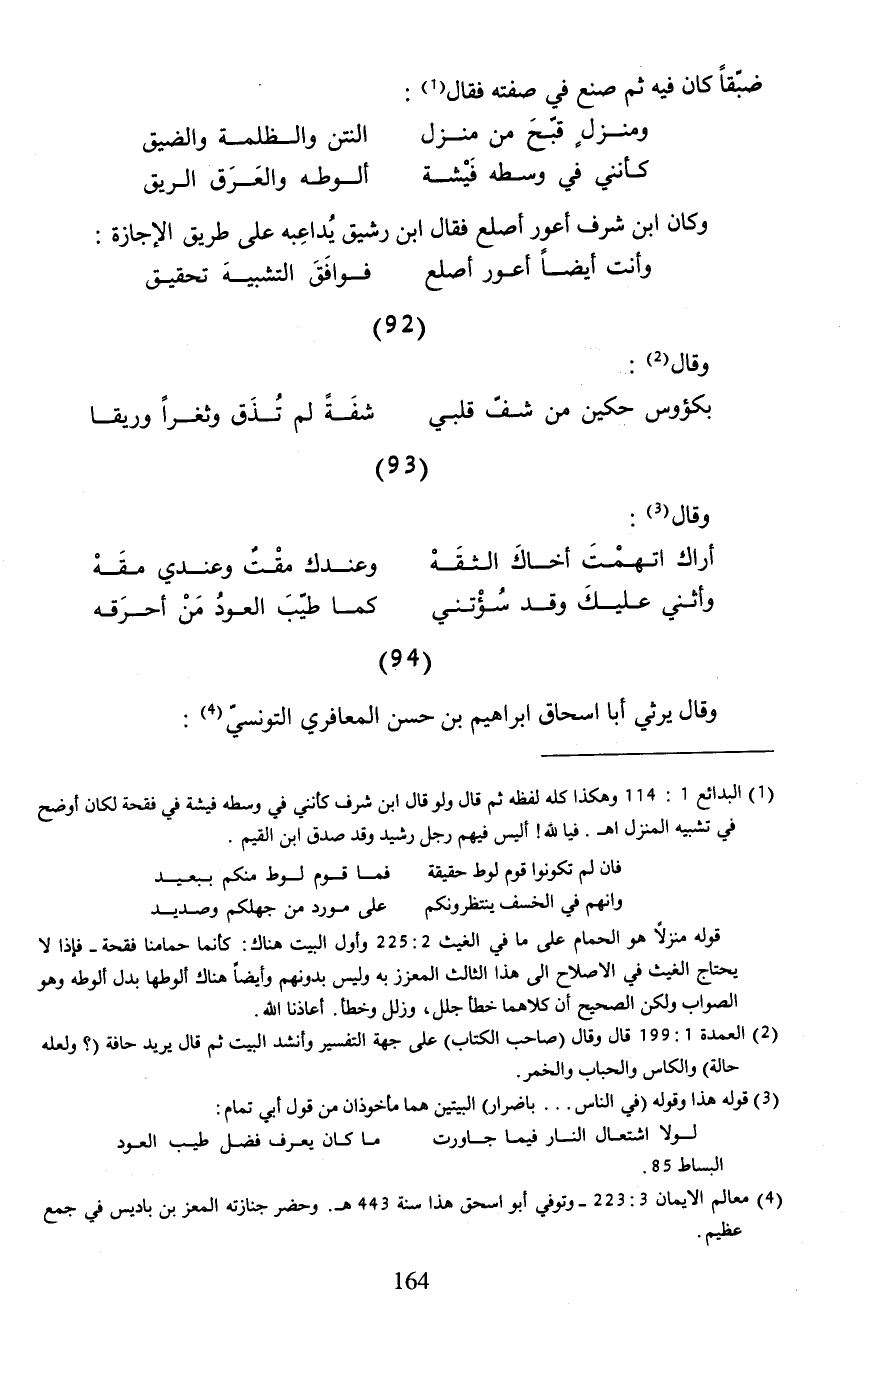 ضيّقاً كان فيه ثم صنع في صفته فقال(1) :
ومنـزلٍ قبّحَ من منـزل النتن والـظلمـة والضيق
كـأنني في وسطه فَيْشـة ألـوطـه والعَـرَق الـريق
وكان ابن شرف أعور أصلع فقال ابن رشيق يُداعِبه على طريق الإجازة :
وأنت أيضـاً أعـور أصلع فـوافَقَ التشبيـهَ تحقيـق
(92)
وقال(2) :
بكؤوس حكين من شـفّ قلبـي شفَـةً لم تُـذَق وثغـراً وريقـا
(93)
وقال(3) :
أراك اتـهـمْـتَ أخـاكَ الـثـقَـهْ وعنـدك مقْـتٌ وعنـدي مـقَـهْ
وأثـني عـليـكَ وقـد سُـؤْتـنـي كمـا طيّبَ العـودُ مَنْ أحـرَقـه
(94)
وقال يرثي أبا اسحاق ابراهيم بن حسن المعافري التونسيّ(4) :
(1) البدائع 1 : 114 وهكذا كله لفظه ثم قال ولو قال ابن شرف كأنني في وسطه فيشة في فقحة لكان أوضح
في تشبيه المنزل اهـ . فيا لله! أليس فيهم رجل رشيد وقد صدق ابن القيم .
فان لم تكونوا قوم لوط حقيقة فمـا قـوم لـوط منكم ببعيـد
وانهم في الخسف ينتظرونكم على مـورد من جهلكم وصـديـد
قوله منزلاً هو الحمام على ما في الغيث 2: 225 وأول البيت هناك: كأنما حمامنا فقحة ـ فإذا لا
يحتاج الغيث في الاصلاح الى هذا الثالث المعزز به وليس بدونهم وأيضاً هناك ألوطها بدل ألوطه وهو
الصواب ولكن الصحيح أن كلاهما خطأ جلل، وزلل وخطأ. أعاذنا الله.
(2) العمدة 1: 199 قال وقال (صاحب الكتاب) على جهة التفسير وأنشد البيت ثم قال يريد حافة (؟ ولعله
حالة) والكاس والحباب والخمر.
(3) قوله هذا وقوله (في الناس... باضرار) البيتين هما مأخوذان من قول أبي تمام:
لـولا اشتعـال النـار فيمـا جـاورت مـا كـان يعـرف فضـل طيـب العـود
البساط 85.
(4) معالم الايمان 3: 223 ـ وتوفي أبو اسحق هذا سنة 443 هـ. وحضر جنازته المعز بن باديس في جمع
عظيم.
164